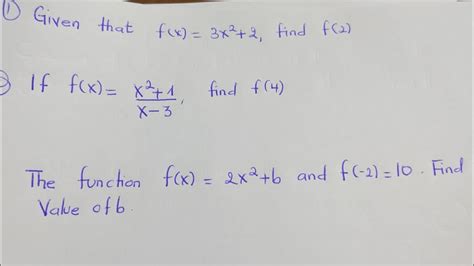 ① Given that f(x) = 3x²+2, find f(2)
② If f(x) = x²+1 / x-3, find f(4)
The function f(x) = 2x²+b and f(-2)=10. Find
Value of b.